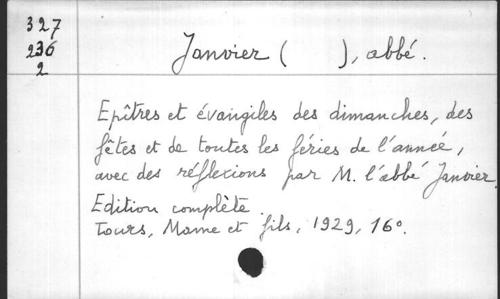 327
236
2
Janvier ( ), abbé.
Epîtres et évangiles des dimanches, des
fêtes et de toutes les féries de l'année,
avec des réflexions par M. l'abbé Janvier.
Edition complète.
Tours, Mame et fils, 1929, 16°.